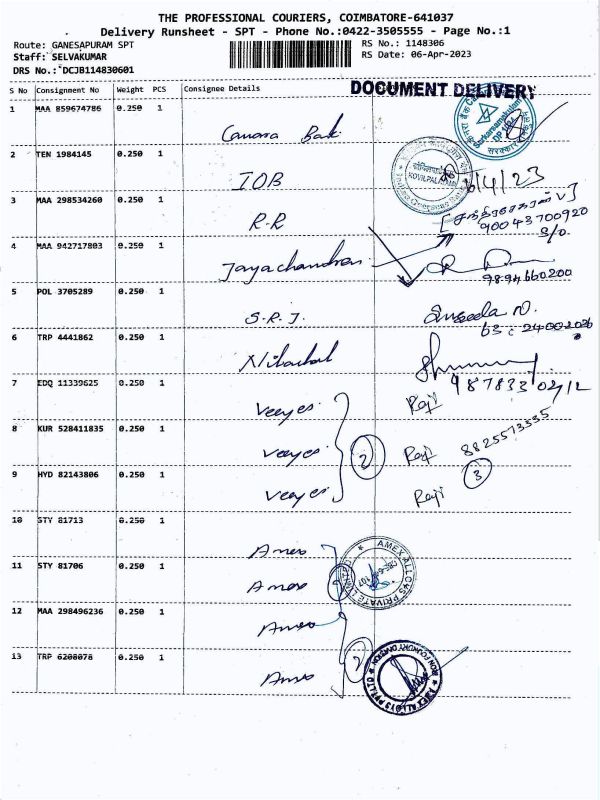 THE PROFESSIONAL COURIERS, COIMBATORE-641037
Delivery Runsheet - SPT - Phone No.:0422-3505555 - Page No.:1
Route: GANESAPURAM SPT
Staff: SELVAKUMAR
DRS No.: DCJB114830601
RS No.: 1148306
RS Date: 06-Apr-2023
S No Consignment No Weight PCS Consignee Details
DOCUMENT DELIVERY
1 MAA 859674786 0.250 1 Canara Bank
2 TEN 1984145 0.250 1 IOB
KOVILPALAYAM
6/4/23
3 MAA 298534260 0.250 1 R.R
90043700920
S/o.
4 MAA 942717803 0.250 1 Jayachandran
9894660200
5 POL 3705289 0.250 1 S.R.J.
6 TRP 4441862 0.250 1
7 EDQ 11339625 0.250 1 Veeyes Raji
8 KUR 528411835 0.250 1 Veeyes 2 Raji 8825573535
9 HYD 82143806 0.250 1 Veeyes Raji 3
10 STY 81713 0.250 1 Amex
11 STY 81706 0.250 1 Amex
AMEX ALLOYS PRIVATE LIMITED
12 MAA 298496236 0.250 1 Amex
13 TRP 6208078 0.250 1 Amex 2
AMEX ALLOYS PVT LTD
IRON FOUNDRY DIVISION